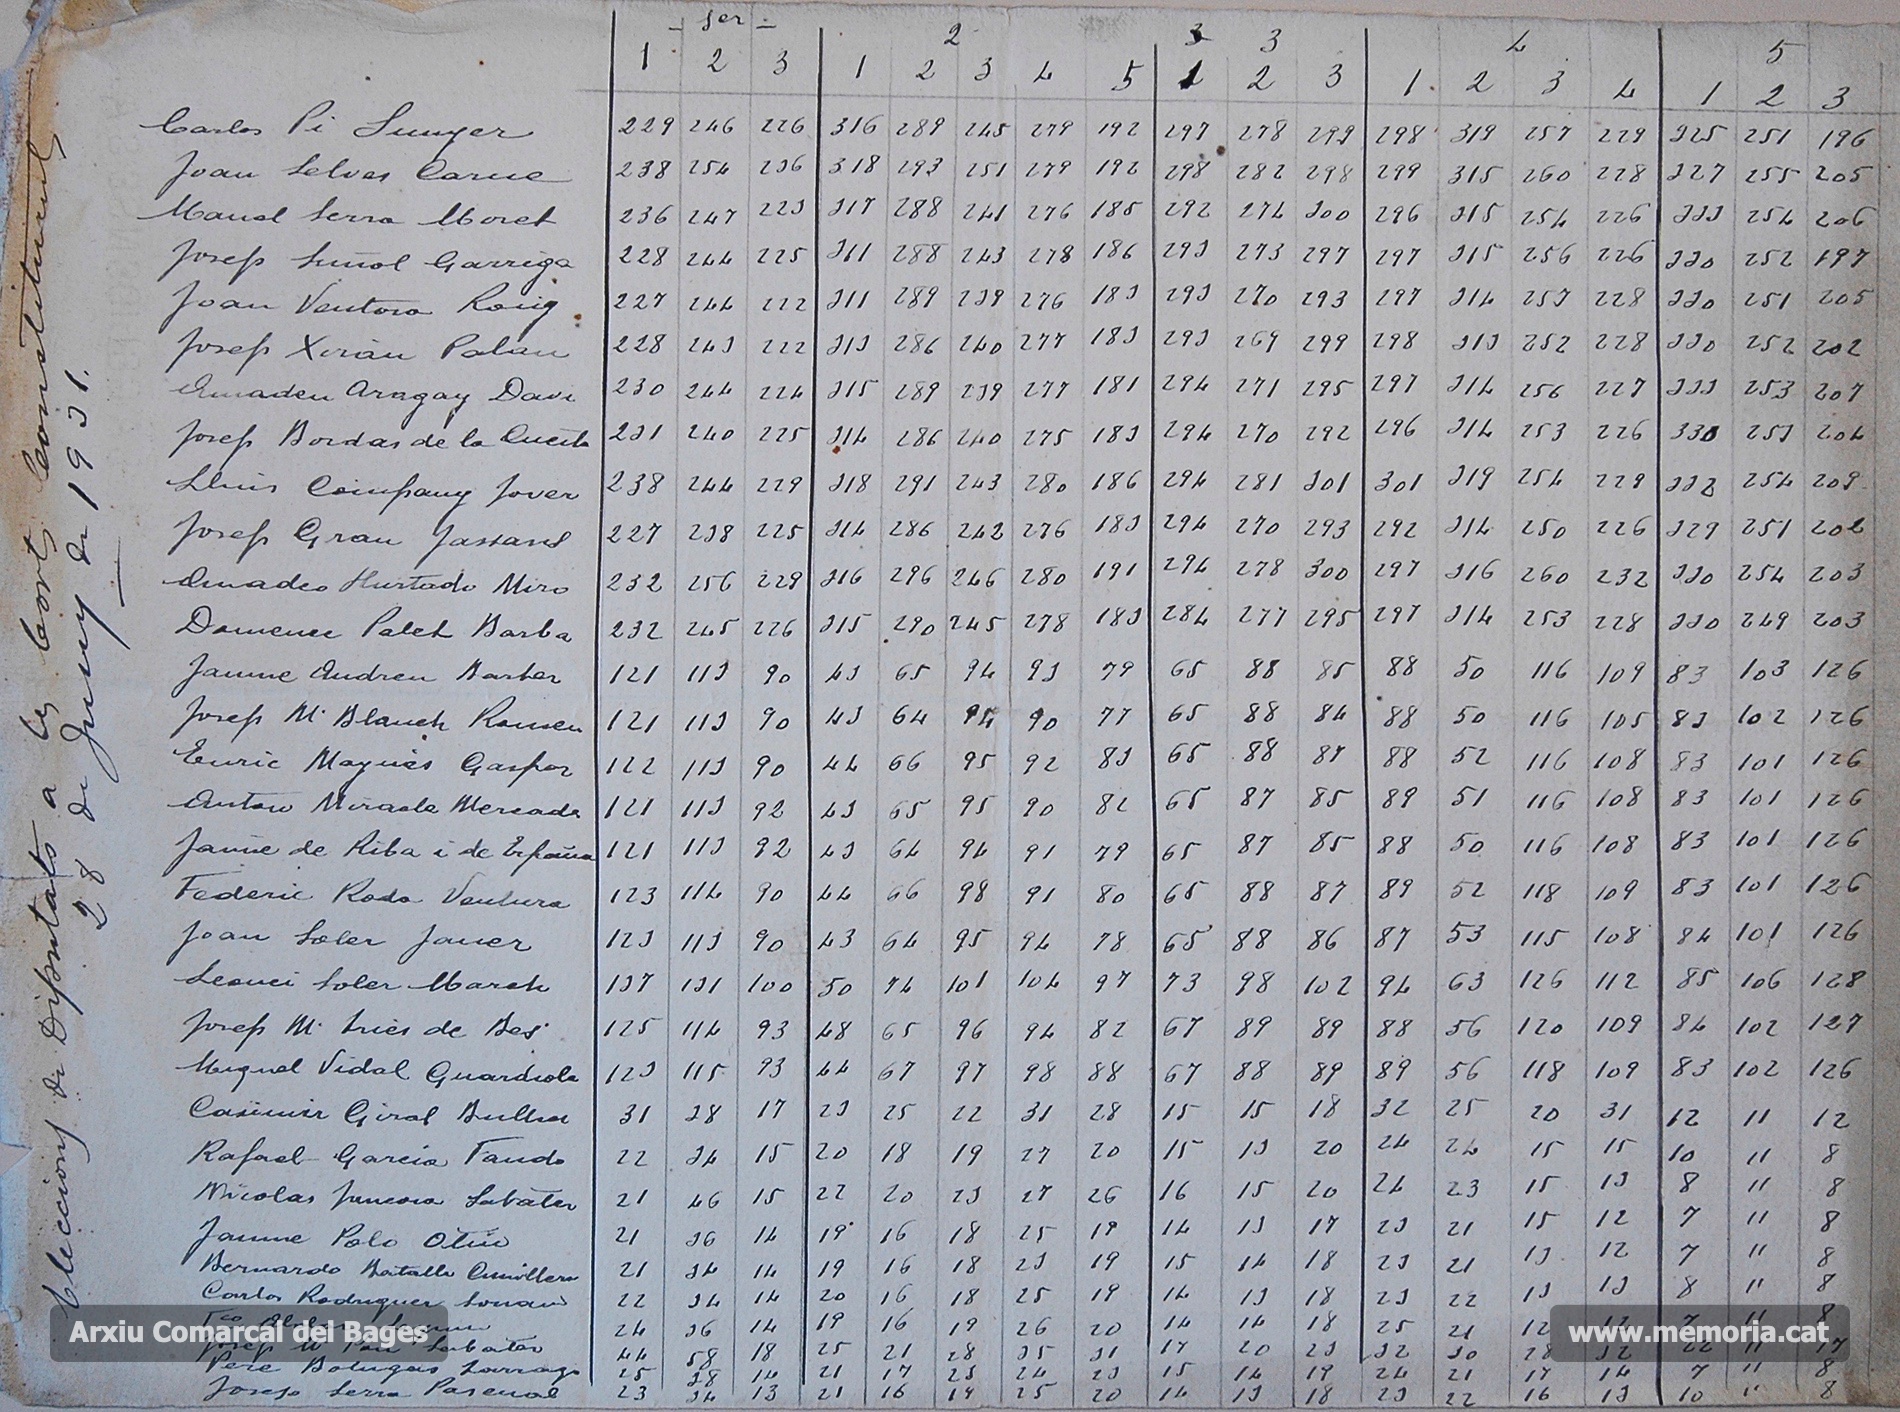 Eleccions de Diputats a les Corts Constituents
28 de Juny de 1931.
1er 2 3 4 5
1 2 3 1 2 3 4 5 1 2 3 1 2 3 4 1 2 3
Carlos Pi Sunyer 229 246 226 316 289 245 279 192 297 278 299 298 319 257 229 325 251 196
Joan Selves Carne 238 254 236 318 293 251 279 192 298 282 298 299 315 260 228 327 255 205
Manel Serra Moret 236 247 223 317 288 241 276 185 292 274 300 296 315 254 226 333 254 206
Josep Suñol Garriga 228 244 225 311 288 243 278 186 293 273 297 297 315 256 226 330 252 197
Joan Ventosa Roig 227 244 222 311 289 239 276 183 293 270 293 297 314 253 228 330 251 205
Josep Xirau Palau 228 243 222 313 286 240 277 183 293 269 299 298 313 252 228 330 252 202
Amadeu Aragay Davi 230 244 224 315 289 239 277 181 294 271 295 297 314 256 227 333 253 207
Josep Bordas de la Cuesta 231 240 225 314 286 240 275 183 294 270 292 296 314 253 226 330 253 204
Lluis Company Jover 238 244 229 318 291 243 280 186 294 281 301 301 319 254 229 332 254 209
Josep Grau Jassans 227 238 225 314 286 242 276 183 294 270 293 292 314 250 226 329 251 202
Amadeo Hurtado Miro 232 256 229 316 296 246 280 191 294 278 300 297 316 260 232 330 254 203
Domenec Palet Barba 232 245 226 315 290 245 278 183 284 277 295 297 314 253 228 330 249 203
Jaume Andreu Barber 121 113 90 43 65 94 93 79 65 88 85 88 50 116 109 83 103 126
Josep M. Blanch Romeu 121 113 90 43 64 94 90 77 65 88 84 88 50 116 105 83 102 126
Enric Maynés Gaspar 122 113 90 44 66 95 92 83 65 88 87 88 52 116 108 83 101 126
Anton Miracle Mercade 121 113 92 43 65 95 90 82 65 87 85 89 51 116 108 83 101 126
Jaume de Riba i de España 121 113 92 43 64 94 91 79 65 87 85 88 50 116 108 83 101 126
Federic Roda Ventura 123 114 90 44 66 98 91 80 65 88 87 89 52 118 109 83 101 126
Joan Soler Janer 123 113 90 43 64 95 94 78 65 88 86 87 53 115 108 84 101 126
Leonci Soler March 137 131 100 50 74 101 104 97 73 98 102 94 63 126 112 85 106 128
Josep M. Tries de Bes 125 114 93 48 65 96 94 82 67 89 89 88 56 120 109 84 102 127
Miquel Vidal Guardiola 123 115 93 44 67 97 98 88 67 88 89 89 56 118 109 83 102 126
Casimir Giral Bullich 31 38 17 23 25 22 31 28 15 15 18 32 25 20 31 12 11 12
Rafael Garcia Fando 22 34 15 20 18 19 27 20 15 13 20 24 24 15 15 10 11 8
Nicolas Juncosa Sabater 21 46 15 22 20 23 27 26 16 15 20 24 23 15 13 8 11 8
Jaume Polo Otin 21 36 14 19 16 18 25 19 14 13 17 23 21 15 12 7 11 8
Bernardo Batalla 21 34 14 19 16 18 23 19 15 14 18 23 21 13 12 7 11 8
Carlos Rodriguez 22 34 14 20 16 18 25 19 14 13 18 23 22 13 13 8 11 8
24 36 14 19 16 19 26 20 14 14 18 25 21 12 7 11 8
Sabater 44 58 18 25 21 28 35 31 17 20 23 32 30 28 32 22 11 17
Pere Bolugas 25 38 14 21 17 23 24 23 15 14 19 24 21 17 14 7 11 8
Josep Serra Pascual 23 34 13 21 16 19 25 20 14 13 18 23 22 16 13 10 11 8
Arxiu Comarcal del Bages
www.memoria.cat